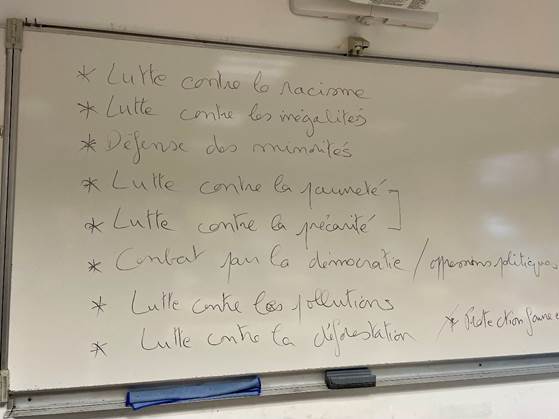 * Lutte contre le racisme
* Lutte contre les inégalités
* Défense des minorités
* Lutte contre la pauvreté
* Lutte contre la précarité
* Combat pour la démocratie / oppressions politiques
* Lutte contre les pollutions
* Lutte contre la déforestation * Protection faune e